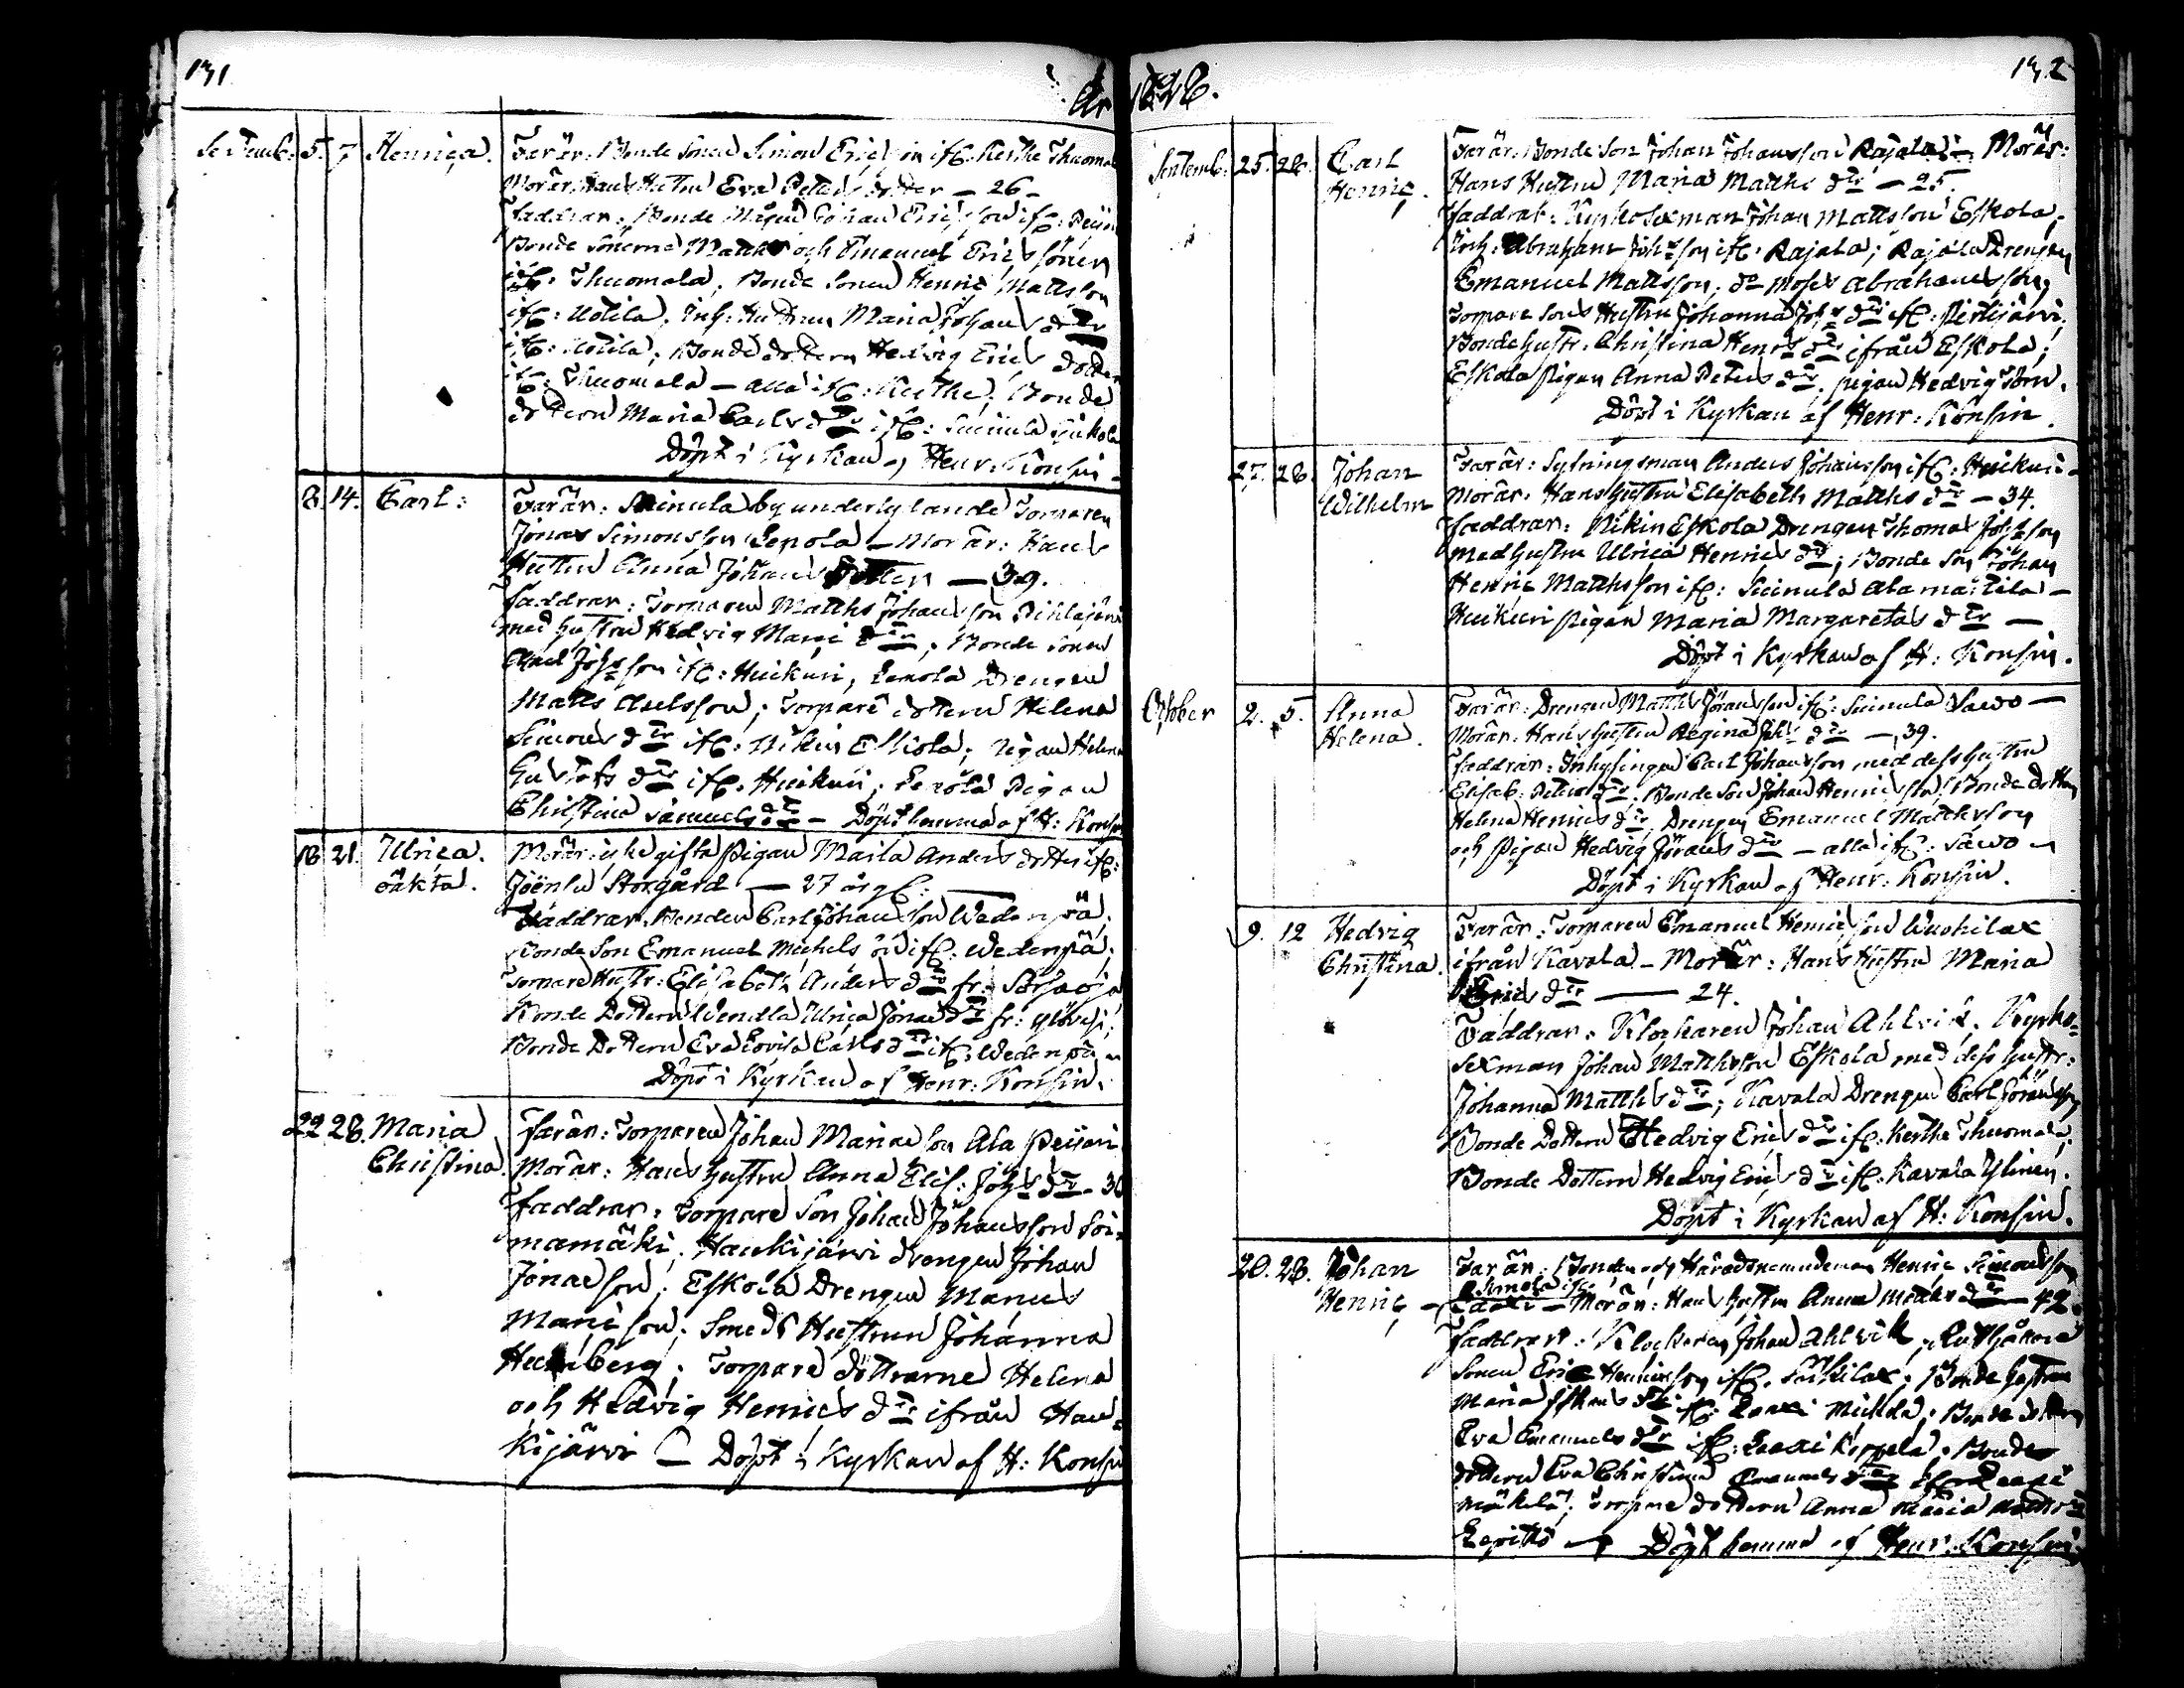 131
År 1828.
Septemb. 5. 7. Henrica. Far är: Bonde Sonen Simon Ericsson ifr: Kerthe Thuomala
Mor är: Hans Hustru Eva Peters dotter — 26 —
Faddrar: Bonde Mågen Johan Ericsson ifr:
Bonde Sönerne Matths och Emanuel Erics söner
ifr: Thuomala, Bonde Sonen Henric Mattsson
ifr: Uotila, Inh: Hustrun Maria Johans dtr
ifr: Uotila, Bonde dottern Hedvig Erics dotter
ifr: Thuomala — alla ifr: Kerthe; Bonde
dottern Maria Carls dtr ifr: Suinula
Döpt i Kyrkan af Henr: Konsin —
8. 14. Carl: Far är: Suinula by underlydande Torparen
Jonas Simonsson Lepola — Mor är: Hans
Hustru Anna Johans dotter — 39.
Faddrar: Torparen Matths Johansson Pihlajärvi
med hustru Hedvig Marci dtr; Bonde sonen
Johsson ifr: Huikuri, Lepola Drengen
Matts Axelsson; Torpare dottern Helena
Simons dtr ifr: Nikin Eskola; Pigan Helena
Gustafs dtr ifr: Huikuri; Lepola Pigan
Christina Samuels dtr — Döpt hemma af H: Konsin
18 21. Ulrica. oäkta. Mor är: icke gifta Pigan Maria Anders dotter ifr:
Joensu Storgård — 27 år gl:
Faddrar. Bonden Carl Johansson Wedenpä,
Bonde Son Emanuel Michels son ifr: Wedenpä;
Torpare Hustr: Elisabeth Anders dtr fr:
Bonde Dottern Wendla Ulrica Jonae dtr fr:
Bonde Dottern Eva Lovisa Carls dtr ifr: Wedenpä
Döpt i Kyrkan af Henr: Konsin.
22 28. Maria Christina. Far är: Torparen Johan Mariae son Ala Peijari
Mor är: Hans hustru Anna Elis: Johs dtr — 30
Faddrar: Torpare Son Johan Johansson Soi-
mamäki; Haukijärvi drengen Johan
Jonae son; Eskola Drengen Manues
Marci son; Smeds Hustrun Johanna
; Torpare döttrarne Helena
och Hedvig Henrics dtr ifrån Hau-
kijärvi — Döpt i Kyrkan af H: Konsin
132
Septemb: 25. 28. Carl Henric. Far är: Bonde Son Johan Johansson Rajala — Mor är:
Hans Hustru Maria Matths dtr — 25.
Faddrar: Kyrkosexman Johan Mattsson Eskola;
Inh: Abraham Johsson ifr: Rajala; Rajala Drengen
Emanuel Mattsson, dr Moses Abrahamsson;
Torpare Sons Hustru Johanna Johs dtr ifr: Pertijärvi;
Bonde hustr. Christina Henrs dtr ifrån Eskola;
Eskola Pigan Anna Peters dtr. pigan Hedvig
Döpt i Kyrkan af Henr: Konsin.
27. 28. Johan Wilhelm Far är: Sytningsman Anders Johansson ifr: Huikuri —
Mor är: Hans hustru Elisabeth Matths dtr — 34.
Faddrar: Nikin Eskola Drengen Thomas Johsson
med hustru Ulrica Henrics dtr; Bonde Son Johan
Henric Matthsson ifr: Suinula Alamattila —
Huikuri Pigan Maria Margareta dtr —
Döpt i Kyrkan af H: Konsin.
October 2. 5. Anna Helena. Far är: Drengen Matths Göransson ifr: Suinula Sawo —
Mor är: Hans hustru Regina Johs dtr — 39.
Faddrar: Inhysingen Carl Johansson med dess hustru
Elisab: Peters dtr; Bonde Son Johan Henricsson; Bonde Dottern
Helena Henrics dtr, Drengen Emanuel Matthsson
och Pigan Hedvig Görans dtr — alla ifr: Sawo —
Döpt i Kyrkan af Henr: Konsin.
9. 12 Hedvig Christina. Far är: Torparen Emanuel Henricsson Wuohilax
ifrån Kavala — Mor är: Hans Hustru Maria
Erics dtr — 24.
Faddrar: Klockaren Johan Ahlvik. Kyrko-
sexman Johan Matthsson Eskola med dess hustr:
Johanna Matths dtr; Kavala Drengen Carl Göransson
Bonde Dottern Hedvig Erics dtr ifr: Kerthe Thuomala;
Bonde Dottern Hedvig Erics dtr ifr: Kavala Ylinen.
Döpt i Kyrkan af H: Konsin.
20. 28. Johan Henric — Far är: Bonden och Häradsnämndeman Henric Simonsson
Simola ifr:
Laaxi — Mor är: Hans hustru Anna Matths dtr — 42.
Faddrar: Klockaren Johan Ahlvik, Rusthållare
Sonen Eric Henricsson ifr: ; Bonde hustrun
Maria Johans dtr ifr: Laaxi Mickola; Bonde dottern
Eva Emanuels dtr ifr: Laaxi Keppola; Bonde
dottern Eva Christina Emanuels dtr ifr: Laaxi
Mäkelä; Torpare dottern Anna Maria
— Döpt hemma af Henr: Konsin.